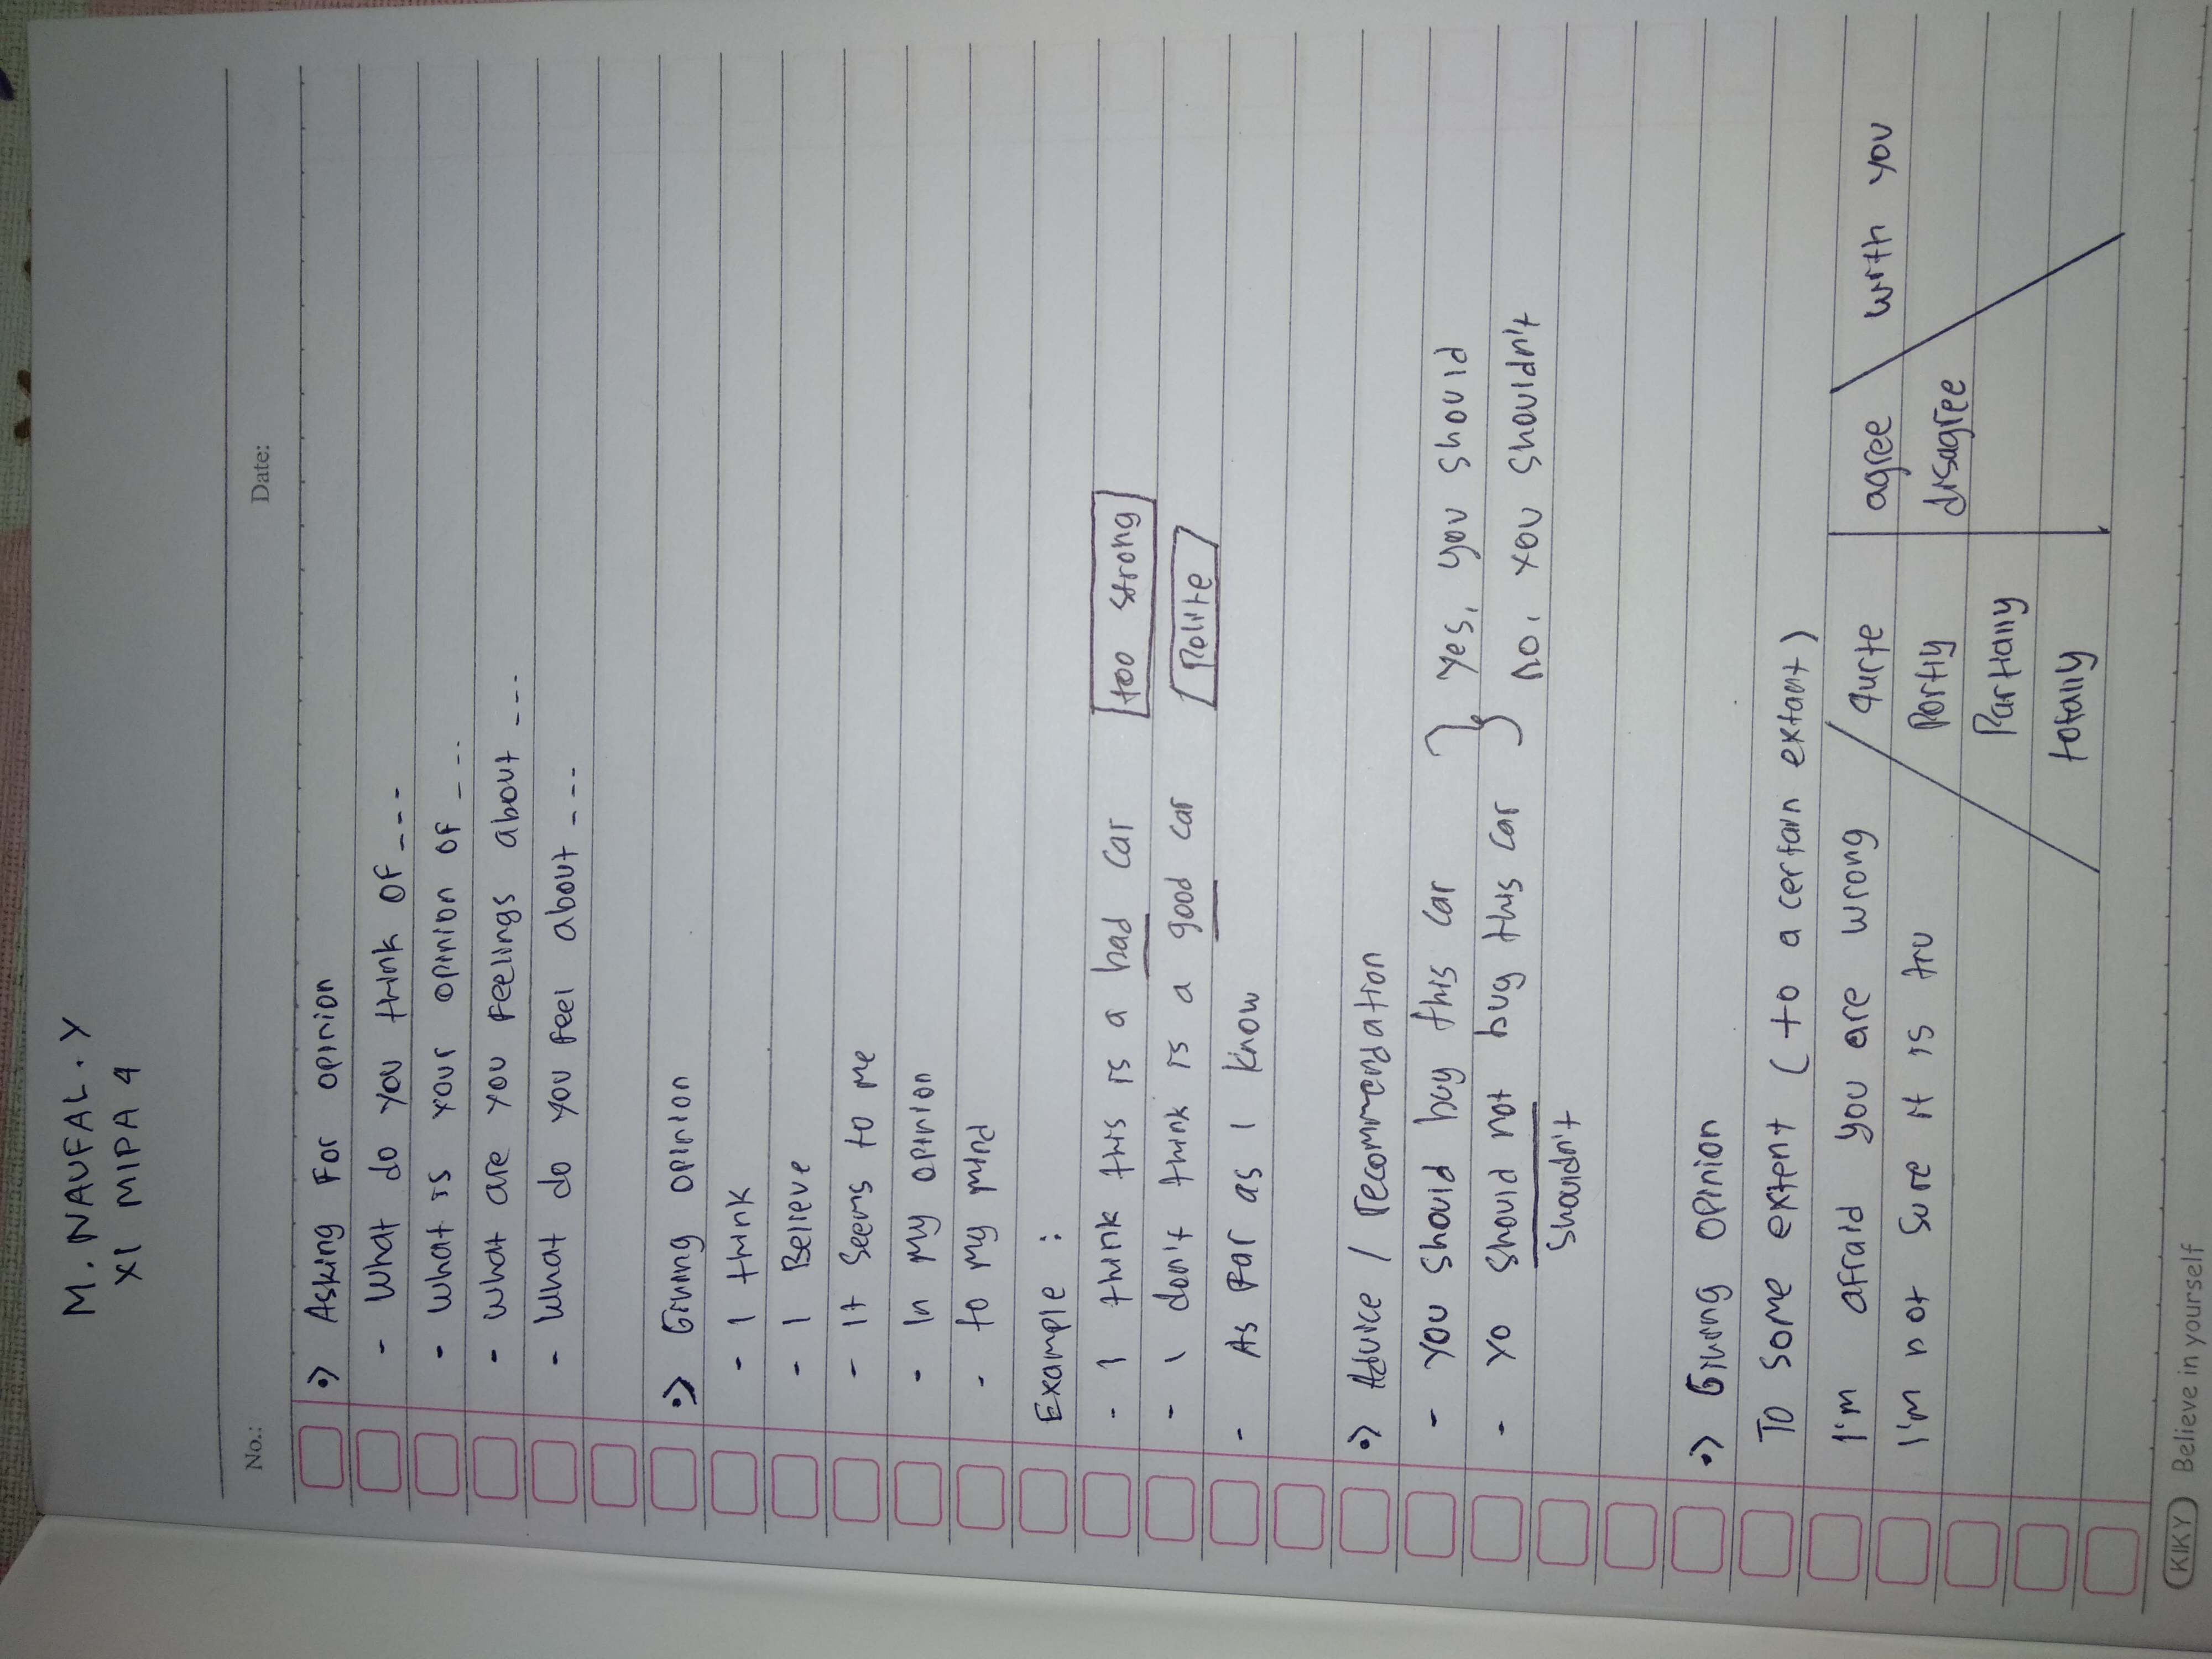 M. NAUFAL. Y
XI MIPA 4
No.: Date:
•> Asking For opinion
- What do you think OF ---
- What is your opinion OF ---
- What are you Feelings about ---
- What do you Feel about ---
•> Giving opinion
- I think
- I Believe
- It Seems to me
- In my opinion
- to my mind
Example :
- I think this is a bad car too strong
- I don't think is a good car Polite
- As Far as I know
•> Advice / recommendation
- you should buy this car } Yes, you should
- Yo should not buy this car No, you shouldn't
shouldn't
•> Giving Opinion
To some extent ( to a certain extant )
I'm afraid you are wrong / quite | agree \ with you
I'm not sure it is tru Portly disagree
Partially
totally
KIKY Believe in yourself